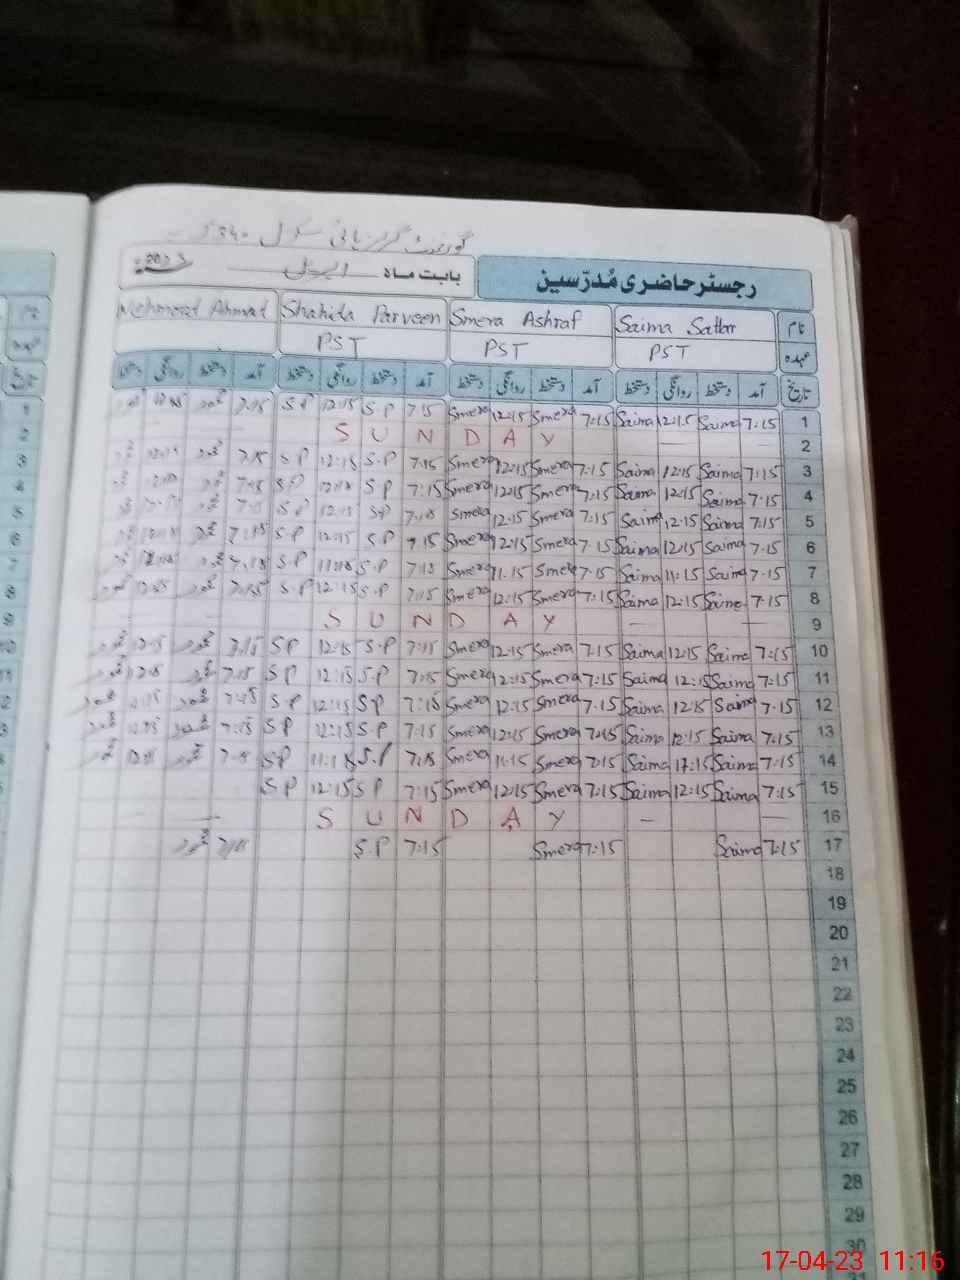 گورنمنٹ گرلز ہائی سکول
رجسٹر حاضری مُدرّسین بابت ماہ اپریل 2023
نام Saima Sattar Smera Ashraf Shahida Parveen Mehmood Ahmad
عہدہ PST PST PST
تاریخ آمد دستخط روانگی دستخط آمد دستخط روانگی دستخط آمد دستخط روانگی دستخط آمد دستخط روانگی دستخط
1 7:15 Saima 12:15 Saima 7:15 Smera 12:15 Smera 7:15 S.P 12:15 S.P 7:15
2 S U N D A Y
3 7:15 Saima 12:15 Saima 7:15 Smera 12:15 Smera 7:15 S.P 12:15 S.P 7:15
4 7:15 Saima 12:15 Saima 7:15 Smera 12:15 Smera 7:15 S P 12:15 S P 7:15
5 7:15 Saima 12:15 Saima 7:15 Smera 12:15 Smera 7:15 S.P 12:15 S.P
6 7:15 Saima 12:15 Saima 7:15 Smera 12:15 Smera 7:15 S.P 12:15 S.P 7:15
7 7:15 Saima 11:15 Saima 7:15 Smera 11:15 Smera 7:15 S.P 11:15 S.P 7:15
8 7:15 Saima 12:15 Saima 7:15 Smera 12:15 Smera 7:15 S.P 12:15 S.P 7:15
9 S U N D A Y
10 7:15 Saima 12:15 Saima 7:15 Smera 12:15 Smera 7:15 S.P 12:15 S.P 7:15
11 7:15 Saima 12:15 Saima 7:15 Smera 12:15 Smera 7:15 S.P 12:15 S.P 7:15
12 7:15 Saima 12:15 Saima 7:15 Smera 12:15 Smera 7:15 S P 12:15 S.P 7:15
13 7:15 Saima 12:15 Saima 7:15 Smera 12:15 Smera 7:15 S.P 12:15 S.P 7:15
14 7:15 Saima Saima 7:15 Smera 11:15 Smera 7:15 S.P 11:15 S.P 7:15
15 7:15 Saima 12:15 Saima 7:15 Smera 12:15 Smera 7:15 S.P 12:15 S.P
16 S U N D A Y
17 7:15 Saima 7:15 Smera 7:15 S.P 7:15
18
19
20
21
22
23
24
25
26
27
28
29
30
17-04-23 11:16